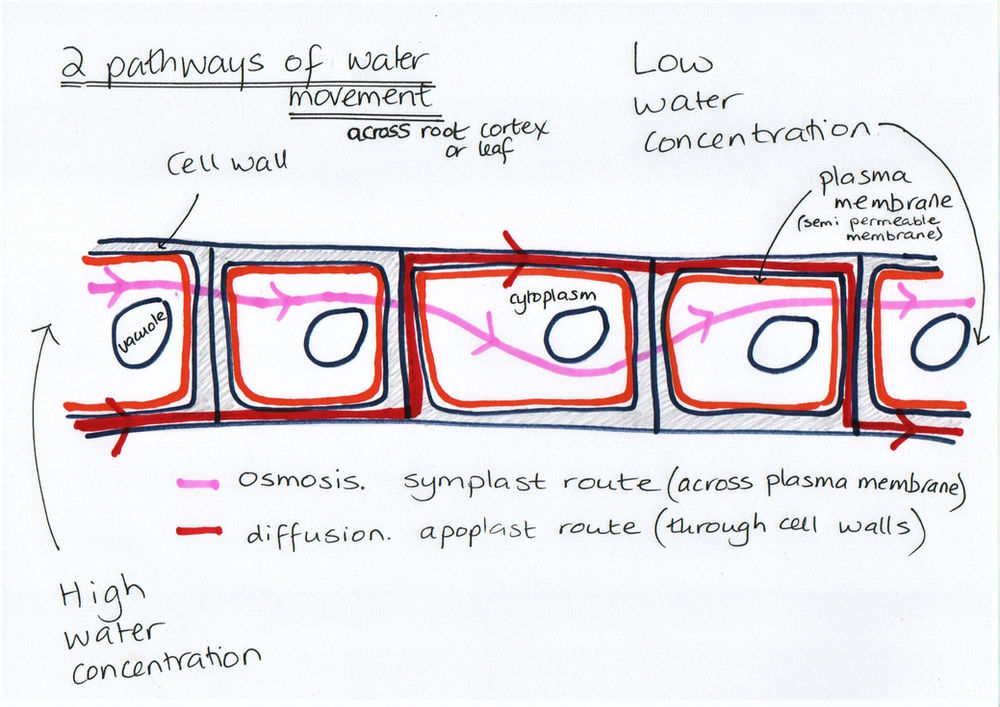 2 pathways of water
movement
across root cortex
or leaf
Low
water
concentration
cell wall
plasma
membrane
(semi permeable
membrane)
cytoplasm
vacuole
osmosis. symplast route (across plasma membrane)
diffusion. apoplast route (through cell walls)
High
water
concentration